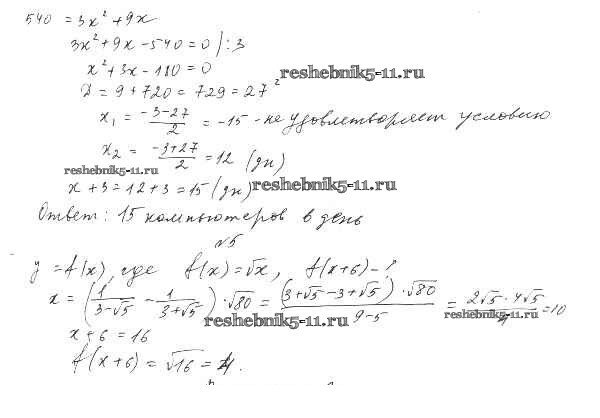 540 = 3x² + 9x
3x² + 9x - 540 = 0 / : 3
x² + 3x - 180 = 0
reshebnik5-11.ru
D = 9 + 720 = 729 = 27²
x₁ = (-3-27)/2 = -15 - не удовлетворяет условию
x₂ = (-3+27)/2 = 12 (дн)
reshebnik5-11.ru
x + 3 = 12 + 3 = 15 (дн)
reshebnik5-11.ru
Ответ: 15 компьютеров в день
№5
y = f(x), где f(x) = √x, f(x+6) - ?
x = (1/(3-√5) - 1/(3+√5)) · √80 = ((3+√5-3+√5) · √80)/(9-5) = (2√5 · 4√5)/4 = 10
reshebnik5-11.ru
reshebnik5-11.ru
x + 6 = 16
f(x+6) = √16 = 4.